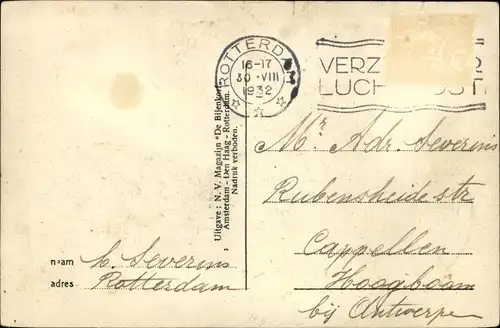 ROTTERDAM
16-17
30·VIII
1932
VERZ
LUCHTPOST
Uitgave: N. V. Magazijn "De Bijenkorf"
Amsterdam - Den Haag - Rotterdam.
Nadruk verboden.
Mr Adr. Severins
Rubensheide str
Cappellen
Hoogboom
bij Antwerpen
naam L. Severins
adres Rotterdam